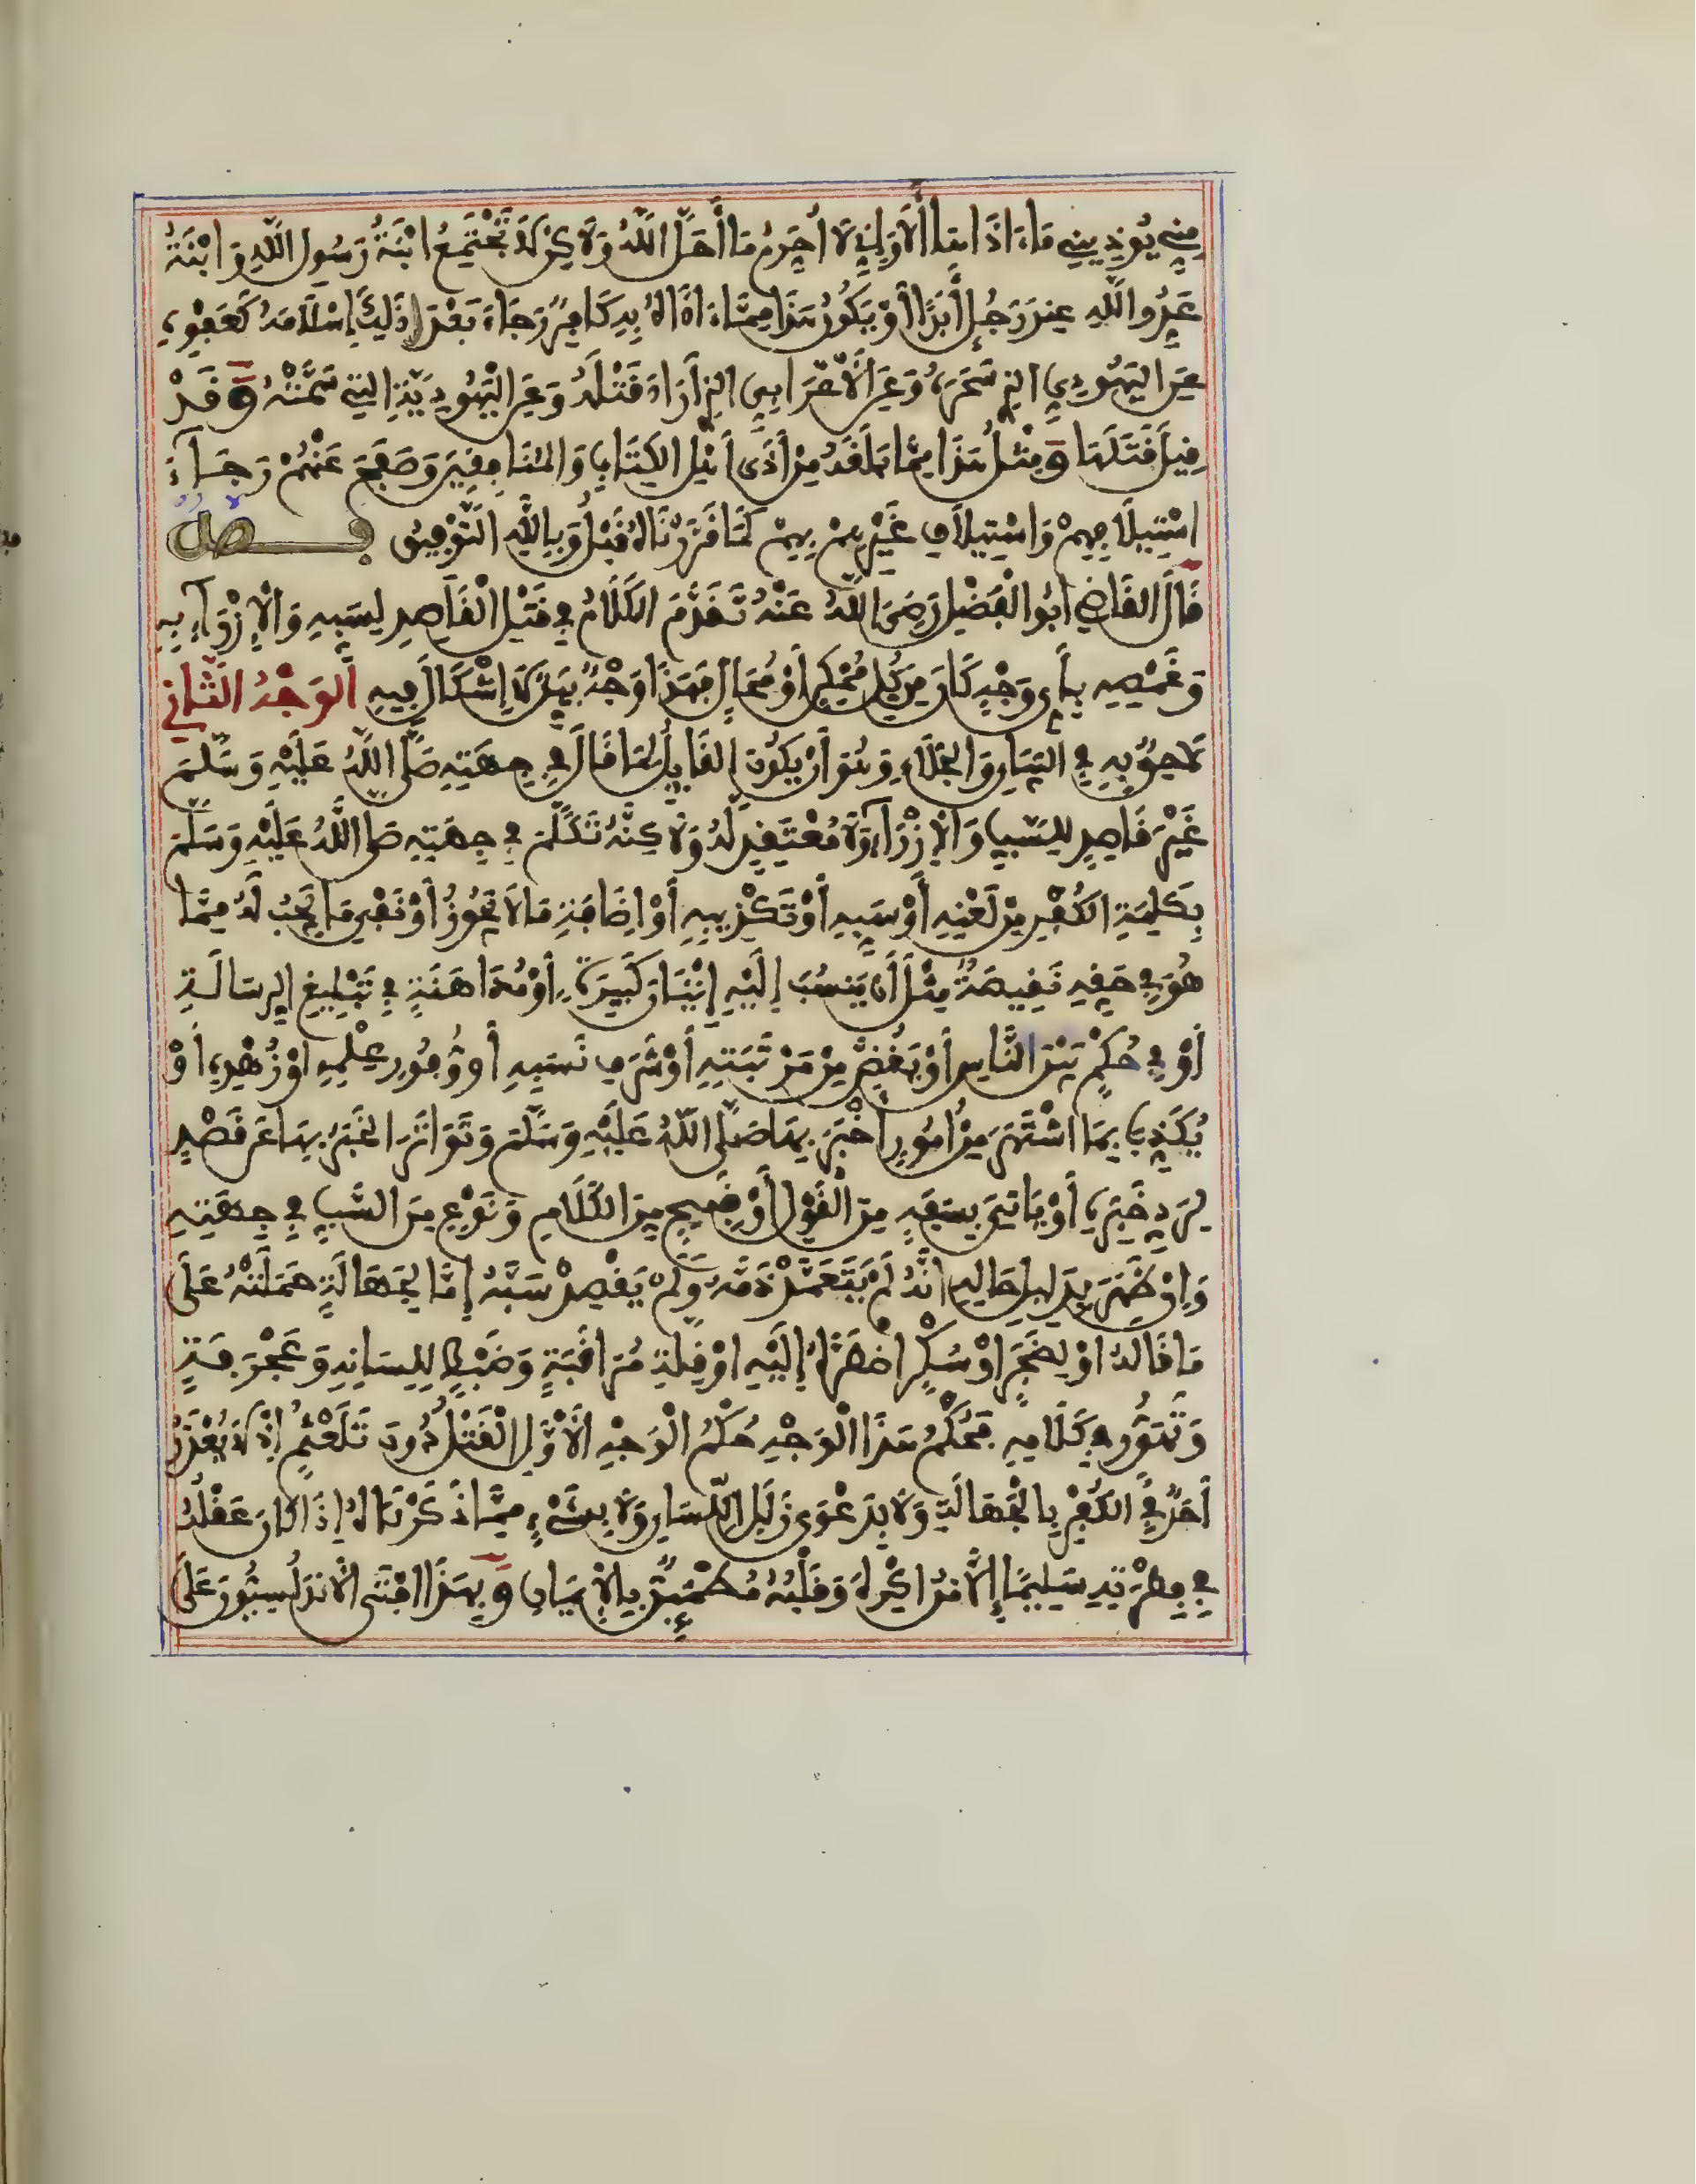 مِنِّي يُوذِينِي مَاءَاذَاهَا أَلَا وَإِنِّي لَا أُحَرِّمُ مَا أَحَلَّ اللَّهُ وَلَاكِن لَا تَجْتَمِعُ ابْنَةُ رَسُولِ اللَّهِ وَابْنَةُ
عَدُوِّ اللَّهِ عِندَ رَجُلٍ أَبَدًا أَوْ يَكُونُ هَذَا مِمَّا ءَاذَاهُ بِهِ كَافِرٌ وَجَاءَ بَعْدَ ذَلِكَ إِسْلَامُهُ كَعَفْوِهِ
عَنِ الْيَهُودِيِّ الذِي سَحَرَهُ وَعَنِ الْأَعْرَابِيِّ الذِي أَرَادَ قَتْلَهُ وَعَنِ الْيَهُودِيَّةِ التِي سَمَّتْهُ وَقَدْ
قِيلَ قَتَلَهَا وَمِثْلُ هَذَا مِمَّا بَلَغَهُ مِنْ أَذَى أَهْلِ الكِتَابِ وَالْمُنَافِقِينَ وَصَفَحَ عَنْهُمْ رَجَاءَ
اسْتِيلَافِهِمْ وَاسْتِيلَافِ غَيْرِهِمْ بِهِمْ كَمَا قَرَّرْنَاهُ قَبْلُ وَبِاللَّهِ التَّوْفِيقِ فصل
قَالَ القَاضِي أَبُو الْفَضْلِ رَضِيَ اللَّهُ عَنْهُ تَقَدَّمَ الكَلَامُ فِي قَتْلِ الْقَاصِدِ لِسَبِّهِ وَالْإِزْرَاءِ بِهِ
وَغَمْصِهِ بِأَيِّ وَجْهٍ كَانَ مِن كُلِّ مُمْكِنٍ أَوْ مُحَالٍ فَهَذَا وَجْهٌ بَيِّنٌ لَا إِشْكَالَ فِيهِ الْوَجْهُ الثَّانِي
لَاحِقٌ بِهِ فِي البَيَانِ وَالجَلَاءِ وَهُوَ أَنْ يَكُونَ القَائِلُ لِمَا قَالَ فِي جِهَتِهِ صَلَّى اللَّهُ عَلَيْهِ وَسَلَّمَ
غَيْرَ قَاصِدٍ لِلسَّبِّ وَالْإِزْرَاءِ وَلَا مُعْتَقِدٍ لَهُ وَلَاكِنَّهُ تَكَلَّمَ فِي جِهَتِهِ صَلَّى اللَّهُ عَلَيْهِ وَسَلَّمَ
بِكَلِمَةِ الكُفْرِ مِنْ لَعْنِهِ أَوْ سَبِّهِ أَوْ تَكْذِيبِهِ أَوْ إِضَافَةِ مَا لَا يَجُوزُ أَوْ نَفْيِ مَا يَجِبُ لَهُ مِمَّا
هُوَ فِي حَقِّهِ نَقِيصَةٌ مِثْلَ أَن يَنسُبَ إِلَيْهِ إِتْيَانَ كَبِيرَةٍ أَوْ مُدَاهَنَةٍ فِي تَبْلِيغِ الرِّسَالَةِ
أَوْ فِي حُكْمٍ بَيْنَ النَّاسِ أَوْ يَغُضُّ مِنْ مَرْتَبَتِهِ أَوْ شَرَفِ نَسَبِهِ أَو وُفُورِ عِلْمِهِ أَوْ زُهْدِهِ أَوْ
يُكَذِّبُ بِمَا اشْتَهَرَ مِنْ أُمُورٍ أَخْبَرَ بِهَا صَلَّى اللَّهُ عَلَيْهِ وَسَلَّمَ وَتَوَاتَرَ الْخَبَرُ بِهَا عَن قَصْدٍ
لِرَدِّ خَبَرِهِ أَوْ يَاتِيَ بِسَفَهٍ مِنَ الْقَوْلِ أَوْ قَبِيحٍ مِنَ الكَلَامِ وَنَوْعٍ مِنَ السَّبِّ فِي جِهَتِهِ
وَإِنْ ظَهَرَ بِدَلِيلِ حَالِهِ أَنَّهُ لَمْ يَتَعَمَّدْ ذَمَّهُ وَلَمْ يَقْصِدْ سَبَّهُ إِمَّا بِجَهَالَةٍ حَمَلَتْهُ عَلَى
مَا قَالَهُ أَوْ لِضَجَرٍ أَوْ سُكْرٍ اضْطَرَّهُ إِلَيْهِ أَوْ قِلَّةِ مُرَاقَبَةٍ وَضَبْطٍ لِلِسَانِهِ وَعَجْرَفَةٍ
وَتَهَوُّرٍ فِي كَلَامِهِ فَحُكْمُ هَذَا الْوَجْهِ حُكْمُ الْوَجْهِ الْأَوَّلِ الْقَتْلُ دُونَ تَلَعْثُمٍ إِذْ لَا يُعْذَرُ
أَحَدٌ فِي الكُفْرِ بِالْجَهَالَةِ وَلَا بِدَعْوَى زَلَلِ اللِّسَانِ وَلَا بِشَيْءٍ مِمَّا ذَكَرْنَاهُ إِذَا كَانَ عَقْلُهُ
فِي فِطْرَتِهِ سَلِيمًا إِلَّا مَنُ اكْرِهَ وَقَلْبُهُ مُطْمَئِنٌّ بِالْإِيمَانِ وَبِهَذَا أَفْتَى الْأَنْدَلُسِيُّونَ عَلَى